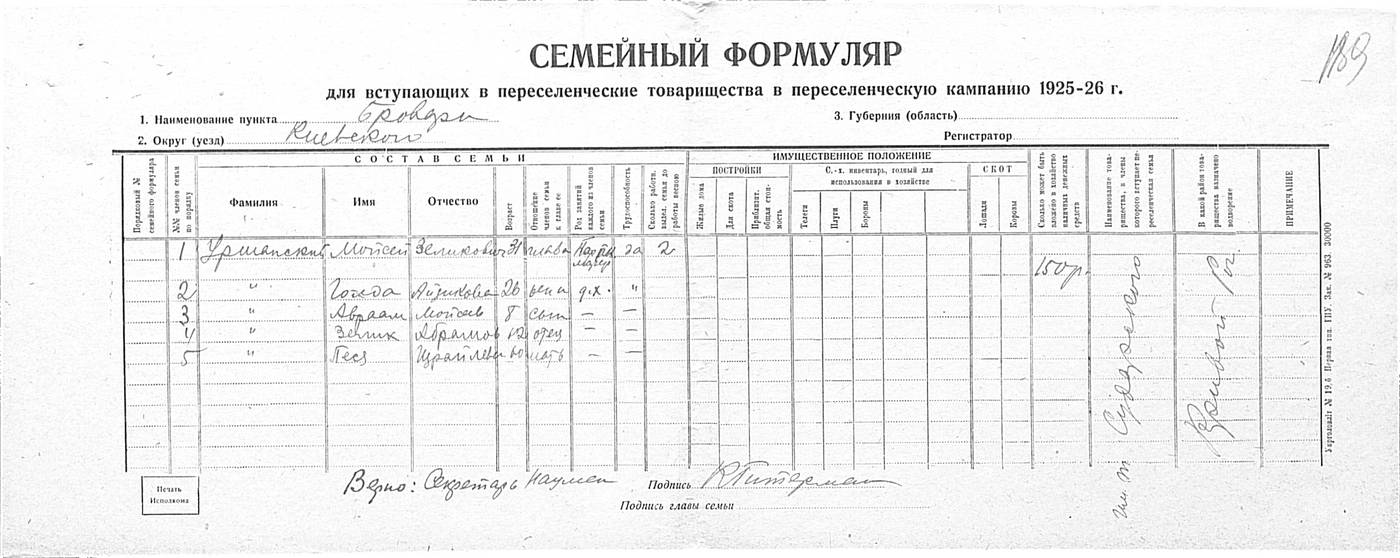 189
СЕМЕЙНЫЙ ФОРМУЛЯР
для вступающих в переселенческие товарищества в переселенческую кампанию 1925-26 г.
1. Наименование пункта Бровары 3. Губерния (область)
2. Округ (уезд) Киевского Регистратор
Порядковый № семейного формуляра
№№ членов семьи по порядку
СОСТАВ СЕМЬИ
Фамилия Имя Отчество
Возраст
Отношение членов семьи к главе ее
Род занятий каждого из членов семьи
Трудоспособность
Сколько работн. выдел. семья до работы весною
ИМУЩЕСТВЕННОЕ ПОЛОЖЕНИЕ
ПОСТРОЙКИ
Жилые дома
Для скота
Приблизит. общая стоимость
С.-х. инвентарь, годный для использования в хозяйстве
Телеги
Плуги
Бороны
СКОТ
Лошади
Коровы
Сколько может быть вложено в хозяйство наличных денежных средств
Наименование товарищества, в члены которого вступает переселенческая семья
В какой район товарищества назначено водворение
ПРИМЕЧАНИЕ
1 Уршанский Мойсей Зеликович 31 глава да 2
2 " Голда Айзикова 26 жена д.х. "
3 " Авраам Мойсеев 8 сын — —
4 " Зелик Абрамов отец — —
5 " Песя Израилева 60 мать — —
150 р.
Кривой Рог
Верно: Секретарь Науменко Подпись
Подпись главы семьи
Печать
Исполкома
Укрголовліт № 19,6 Перша тип. ТПУ, Зак. № 963. 30000